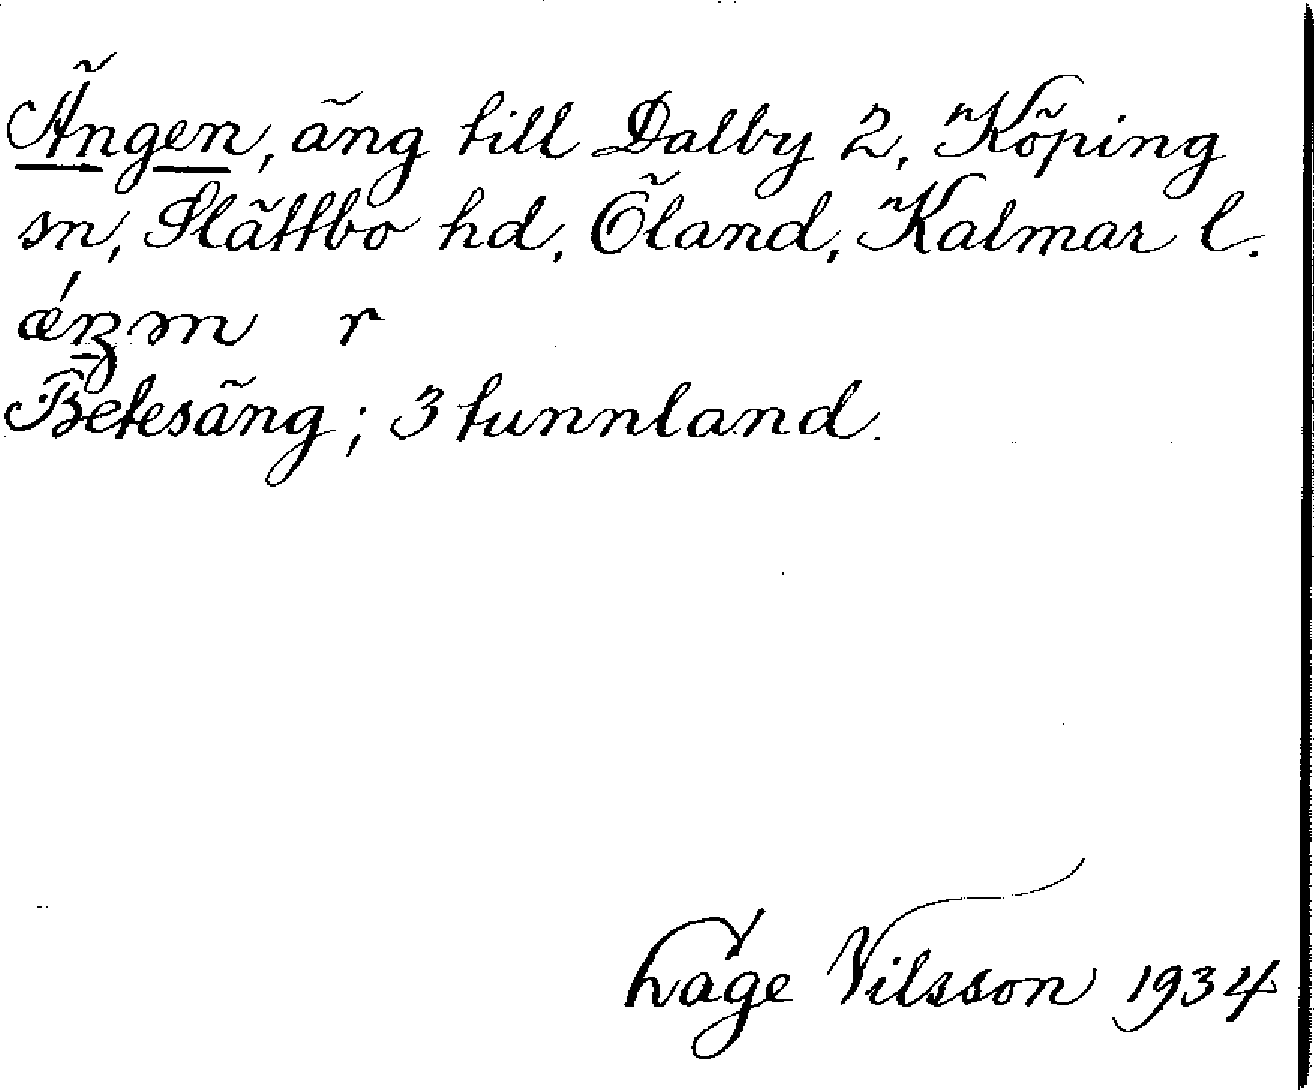 Ängen, äng till Dalby 2, Köping
sn, Slättbo hd, Öland, Kalmar l.
r
Betesäng; 3 tunnland.
Låge Nilsson 1934